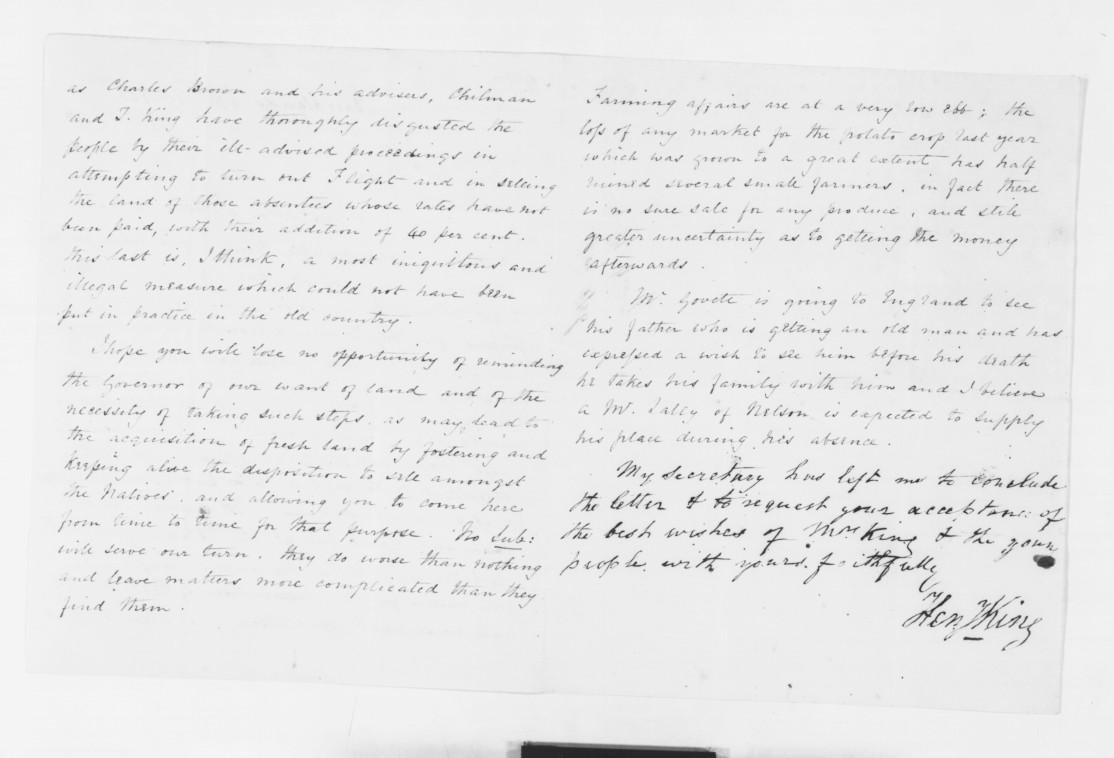 as Charles Brown and his advisers, Chilman
and T. King have thoroughly disgusted the
people by their ill-advised proceedings in
attempting to turn out Flight and in selling
the land of those absentees whose rates have not
been paid, with their addition of 40 per cent.
this last is, I think, a most iniquitous and
illegal measure which could not have been
put in practice in the old country.
I hope you will lose no opportunity of reminding
the Governor of our want of land and of the
necessity of taking such steps as may lead to
the acquisition of fresh land by fostering and
keeping alive the disposition to sell amongst
the Natives and allowing you to come here
from time to time for that purpose. No Sub:
will serve our turn. they do worse than nothing
and leave matters more complicated than they
find them.
Farming affairs are at a very low ebb; the
loss of any market for the potato crop last year
which was grown to a great extent has half
ruined several small farmers. in fact there
is no sure sale for any produce, and still
greater uncertainty as to getting the money
afterwards.
Mr. Govett is going to England to see
his father who is getting an old man and has
expressed a wish to see him before his death
he takes his family with him and I believe
a Mr. of Nelson is expected to supply
his place during his absence.
My secretary has left me to conclude
the letter & to request your acceptance of
the best wishes of Mrs King & the youn
people with yours faithfully
Heny King